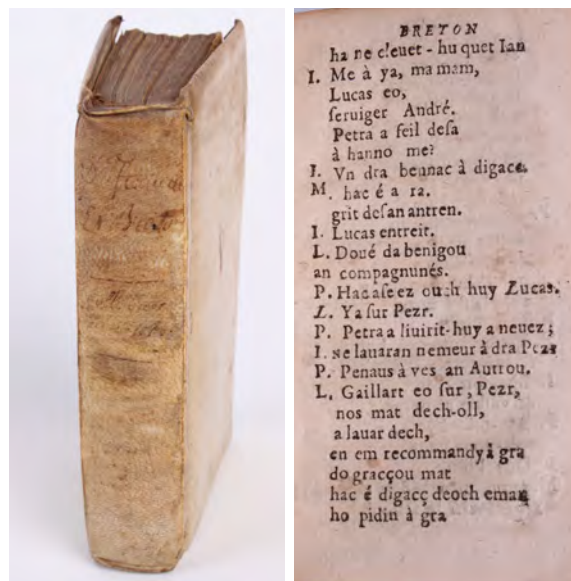 BRETON
ha ne cleuet - hu quet Ian
I. Me à ya, ma mam,
Lucas eo,
ſeruiger André.
Petra a ſeil deſa
à hanno me?
I. Vn dra bennac à digace.
M. hac é a ra.
grit deſan antren.
I. Lucas entreit.
L. Doué da benigou
an compagnunés.
P. Hac aſe ez ouch huy Lucas.
L. Ya ſur Pezr.
P. Petra a liuirit-huy a neuez;
I. ne lauaran nemeur à dra Pezr
P. Penaus à ves an Autrou.
L. Gaillart eo ſur, Pezr,
nos mat dech-oll,
a lauar dech,
en em recommandy à gra
do gracçou mat
hac é digacç deoch eman
ho pidin à gra